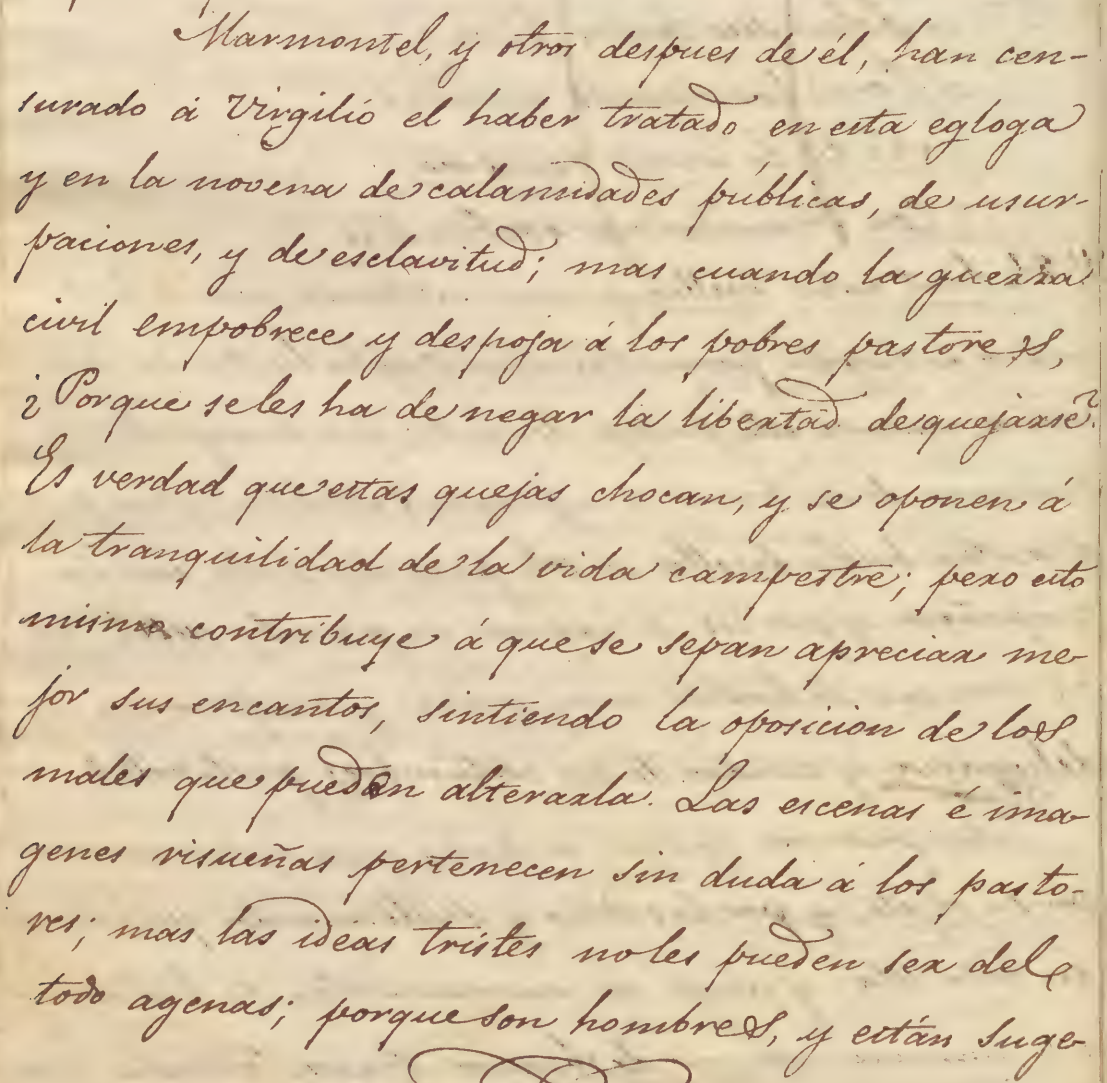 Marmontel, y otros despues de él, han cen-
surado á Virgilio el haber tratado en esta egloga
y en la novena de calamidades públicas, de usur-
paciones, y de esclavitud; mas cuando la guerra
civil empobrece y despoja á los pobres pastores,
¿Porque seles ha de negar la libertad de quejarse?
Es verdad que estas quejas chocan, y se oponen á
la tranquilidad de la vida campestre; pero esto
mismo contribuye á que se sepan apreciar me-
jor sus encantos, sintiendo la oposicion de los
males que pueden alterarla. Las escenas é ima-
genes risueñas pertenecen sin duda á los pasto-
res; mas las ideas tristes no les pueden ser del
todo agenas; porque son hombres, y están suge-